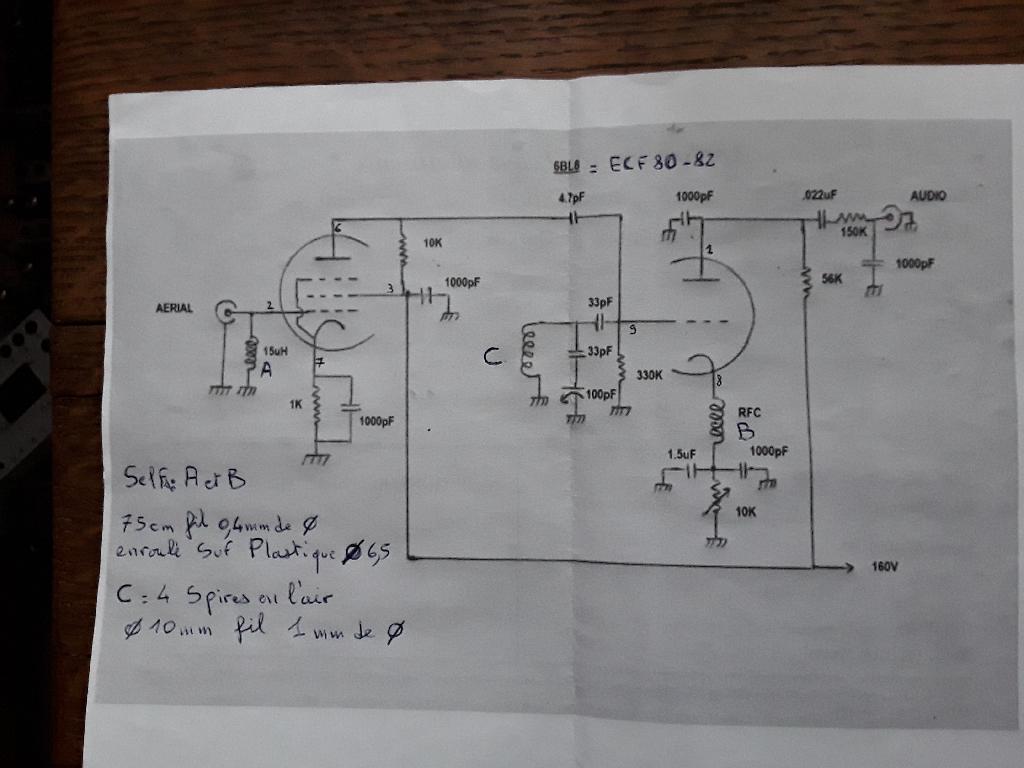 6BL8 = ECF 80-82
4.7pF
1000pF
.022uF
AUDIO
6
10K
1
150K
3
1000pF
56K
1000pF
AERIAL
2
33pF
9
15uH
A
7
C
33pF
330K
8
100pF
1K
1000pF
RFC
B
1.5uF
1000pF
10K
Selfs: A et B
75cm fil 0,4mm de Ø
enroulé Sur Plastique Ø 6,5
160V
C = 4 Spires en l'air
Ø 10 mm fil 1 mm de Ø